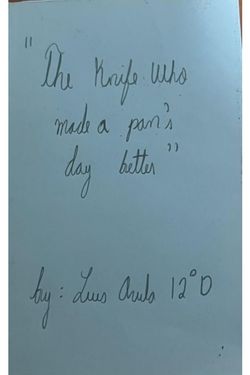 "The Knife Who
made a pan's
day better"
by: Luis 12°D